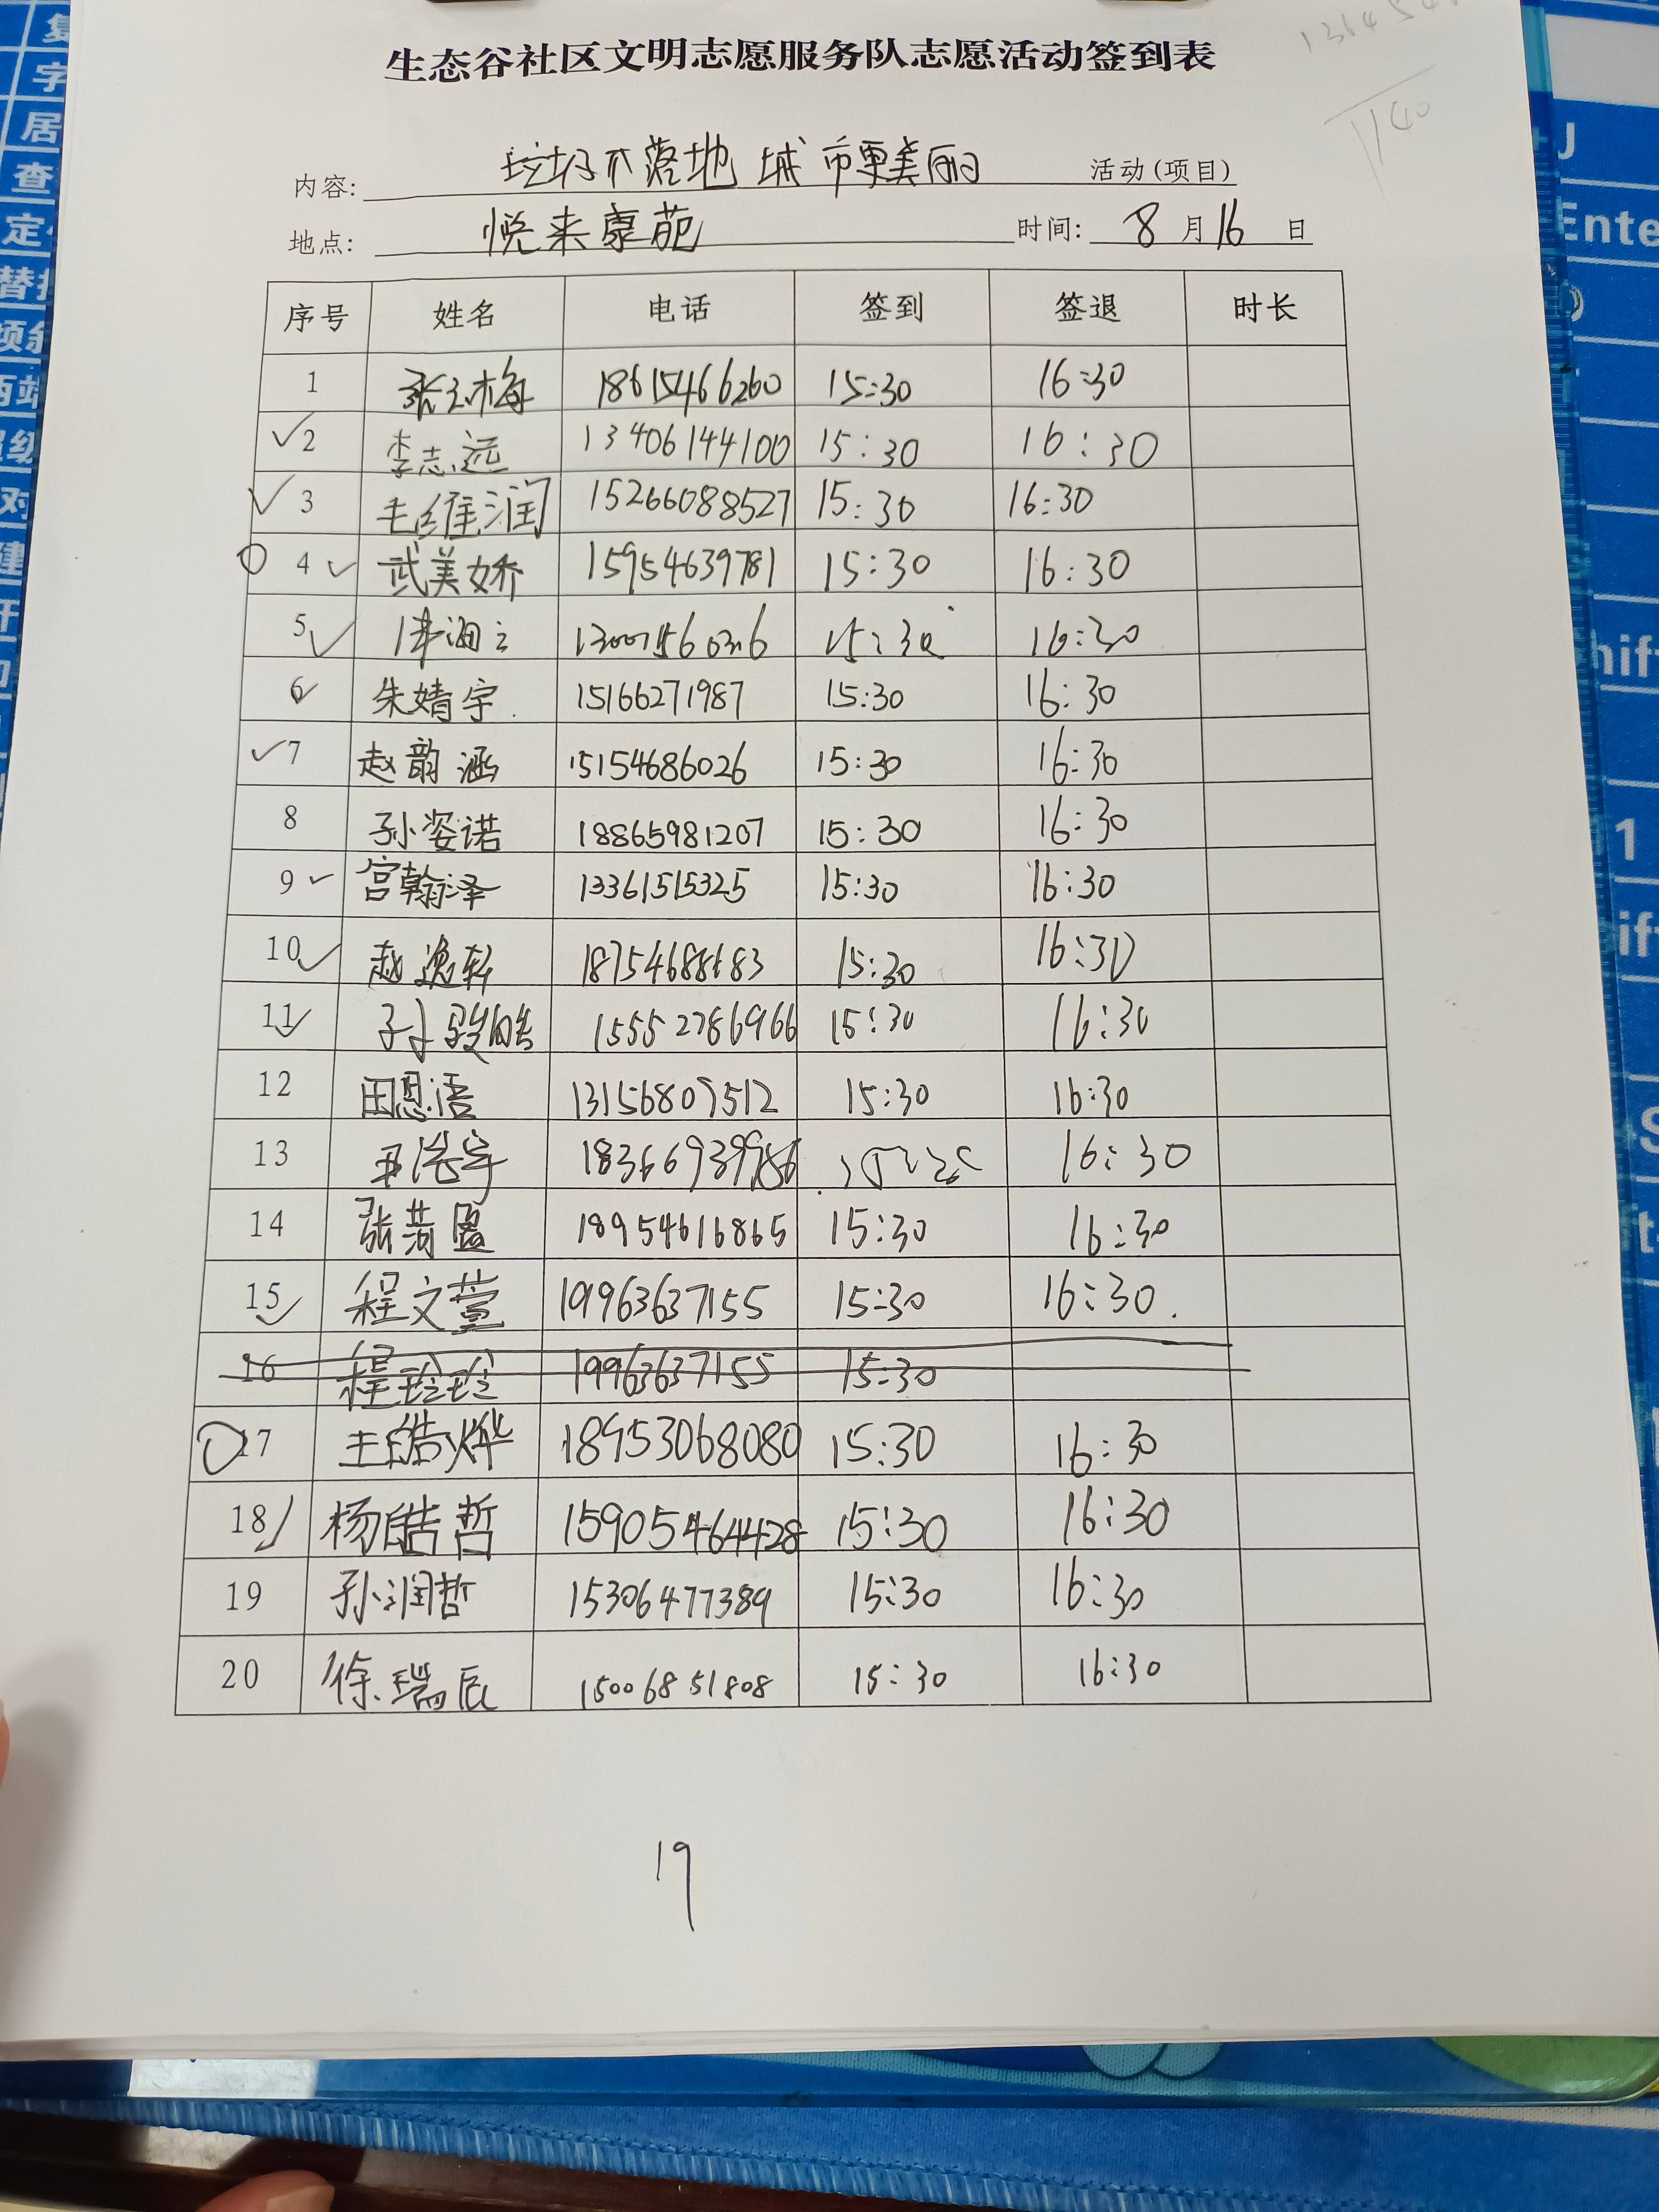 生态谷社区文明志愿服务队志愿活动签到表
内容: 垃圾不落地 城市更美丽 活动(项目)
地点: 悦来康苑 时间: 8 月 16 日
序号 姓名 电话 签到 签退 时长
1 张玉梅 18615466260 15:30 16:30
2 李志远 13406144100 15:30 16:30
3 王维润 15266088527 15:30 16:30
4 武美娇 15954639781 15:30 16:30
5 15:30 16:30
6 朱婧宇 15166271987 15:30 16:30
7 赵韵涵 15154686026 15:30 16:30
8 孙姿诺 18865981207 15:30 16:30
9 宫翰泽 13361515325 15:30 16:30
10 赵逸轩 18754688683 15:30 16:30
11 孙骏皓 15552786966 15:30 16:30
12 田恩语 13156807512 15:30 16:30
13 王浩宇 18366939986 16:30
14 张芮盈 18954616865 15:30 16:30
15 程文萱 19963637155 15:30 16:30
16 程玲玲 19963637155 15:30
17 王皓烨 18953068080 15:30 16:30
18 杨皓哲 15905464428 15:30 16:30
19 孙润哲 15306477389 15:30 16:30
20 徐瑞辰 15006851808 15:30 16:30
19